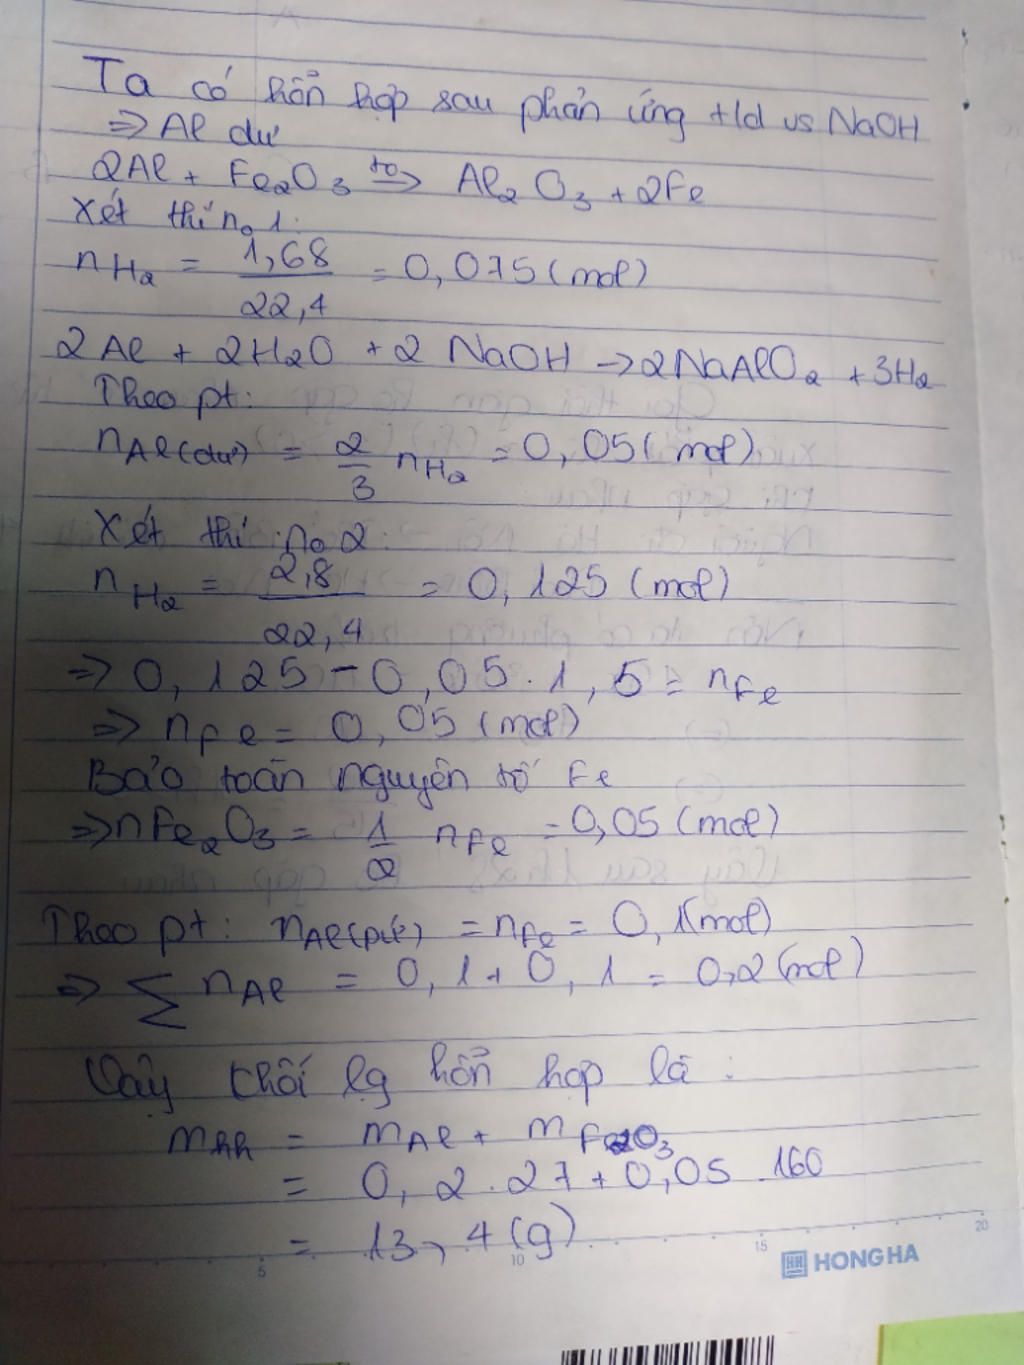 Ta có hỗn hợp sau phản ứng +/d vs NaOH
⇒ Al dư
2Al + Fe₂O₃ t⁰→ Al₂O₃ + 2Fe
Xét thí no 1:
nH₂ = 1,68/22,4 = 0,075 (mol)
2Al + 2H₂O + 2 NaOH → 2NaAlO₂ + 3H₂
Theo pt:
nAl(dư) = 2/3 nH₂ = 0,05 (mol)
Xét thí no 2:
nH₂ = 2,8/22,4 = 0,125 (mol)
⇒ 0,125 - 0,05.1,5 = nFe
⇒ nFe = 0,05 (mol)
Bảo toàn nguyên tố Fe
⇒ nFe₂O₃ = 1/2 nFe = 0,05 (mol)
Theo pt: nAl(pứ) = nFe = 0,1 (mol)
⇒ ∑ nAl = 0,1 + 0,1 = 0,2 (mol)
Vậy khối lg hỗn hợp là:
mhh = mAl + mFe₂O₃
= 0,2.27 + 0,05.160
= 13,4 (g)
5 10 15 20
HH HONG HA